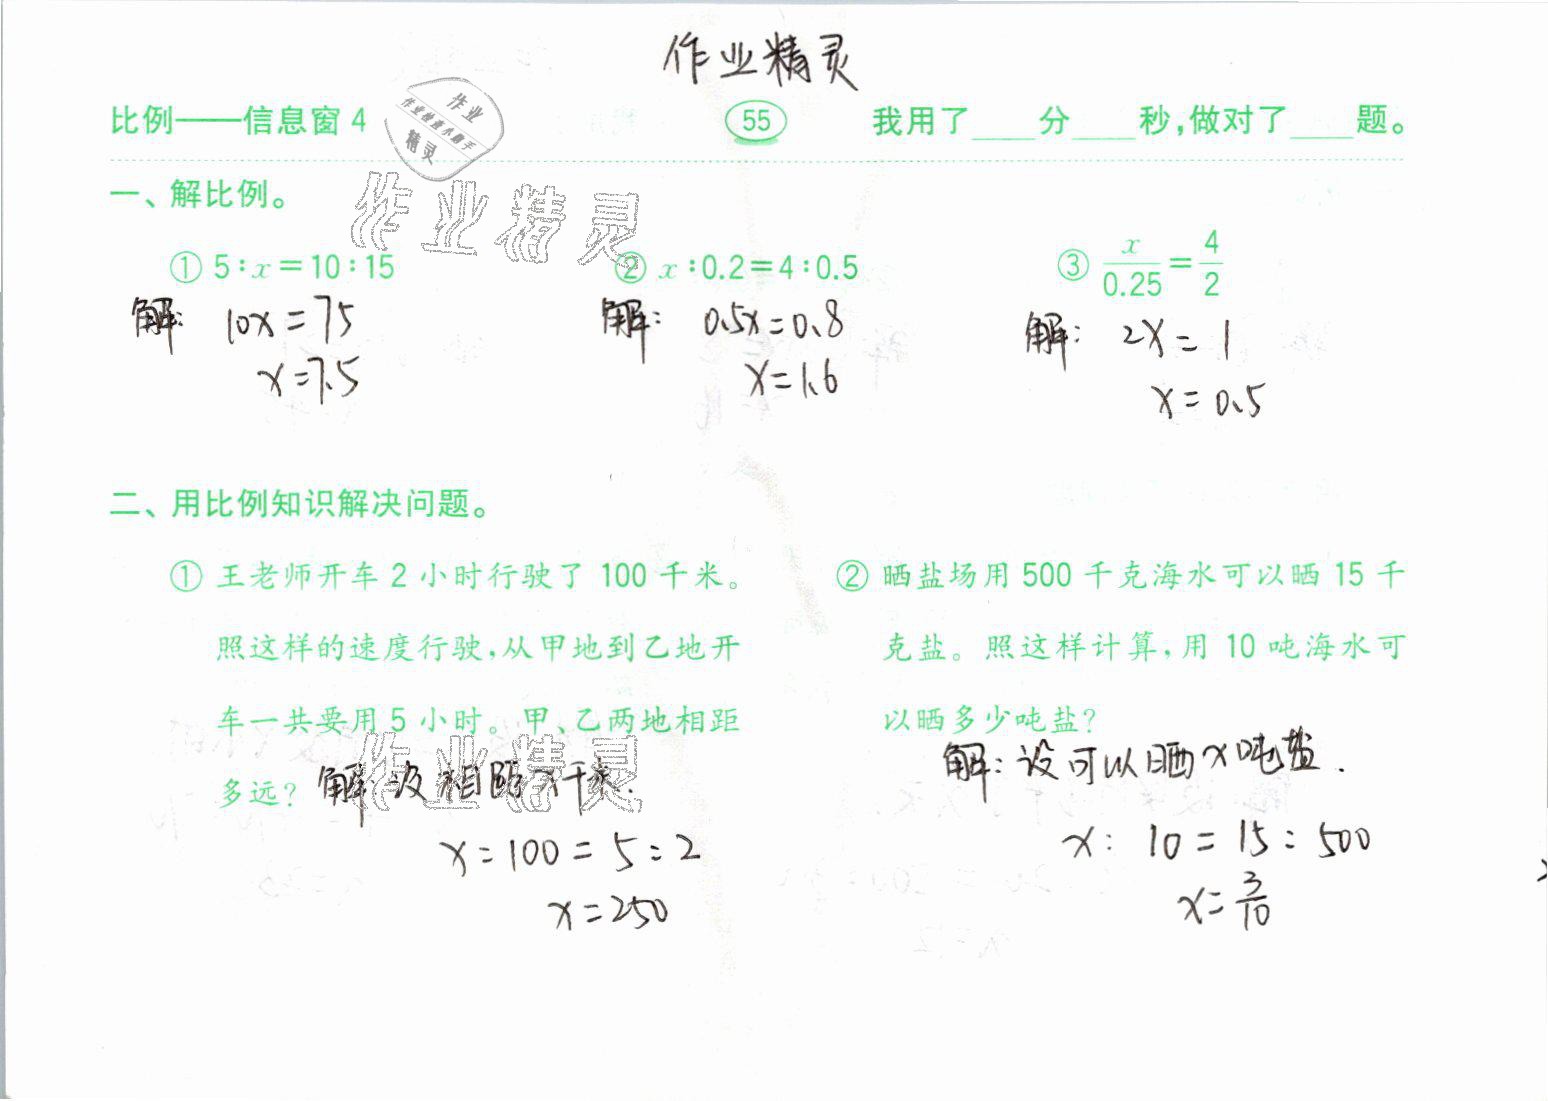 作业精灵
比例——信息窗4 55 我用了____分____秒,做对了____题。
作业
作业检查小助手
精灵
一、解比例。
作业精灵
① 5:x=10:15 ② x:0.2=4:0.5 ③ x/0.25=4/2
解: 10x=75 解: 0.5x=0.8 解: 2x=1
x=7.5 x=1.6 x=0.5
二、用比例知识解决问题。
① 王老师开车2小时行驶了100千米。
照这样的速度行驶,从甲地到乙地开
车一共要用5小时。甲、乙两地相距
多远?
作业精灵
解:设相距x千米.
x=100=5:2
x=250
② 晒盐场用500千克海水可以晒15千
克盐。照这样计算,用10吨海水可
以晒多少吨盐?
解:设可以晒x吨盐.
x:10=15:500
x=3/10